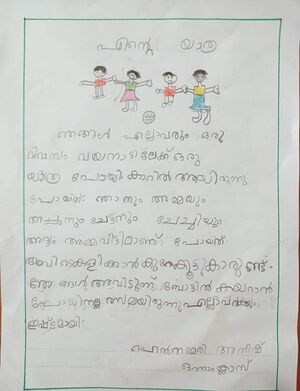 എന്റെ യാത്ര
ഞങ്ങൾ എല്ലാവരും ഒരു
ദിവസം വയനാട്ടിലേക്ക് ഒരു
യാത്ര പോയി കാറിൽ ആയിരുന്നു
പോയത് ഞാനും അമ്മയും
അച്ഛനും ചേട്ടനും ചേച്ചിയും
ആദ്യം അമ്മ വീട്ടിലാണ് പോയത്
അവിടെ കളിക്കാൻ കുറേ കൂട്ടുകാരുണ്ട്
ഞങ്ങൾ അവിടുന്ന് ബോട്ടിൽ കയറാൻ
പോയി നല്ല രസമായിരുന്നു എല്ലാവർക്കും
ഇഷ്ടമായി
ഹെൽന മരി അനീഷ്
ഒന്നാം ക്ലാസ്